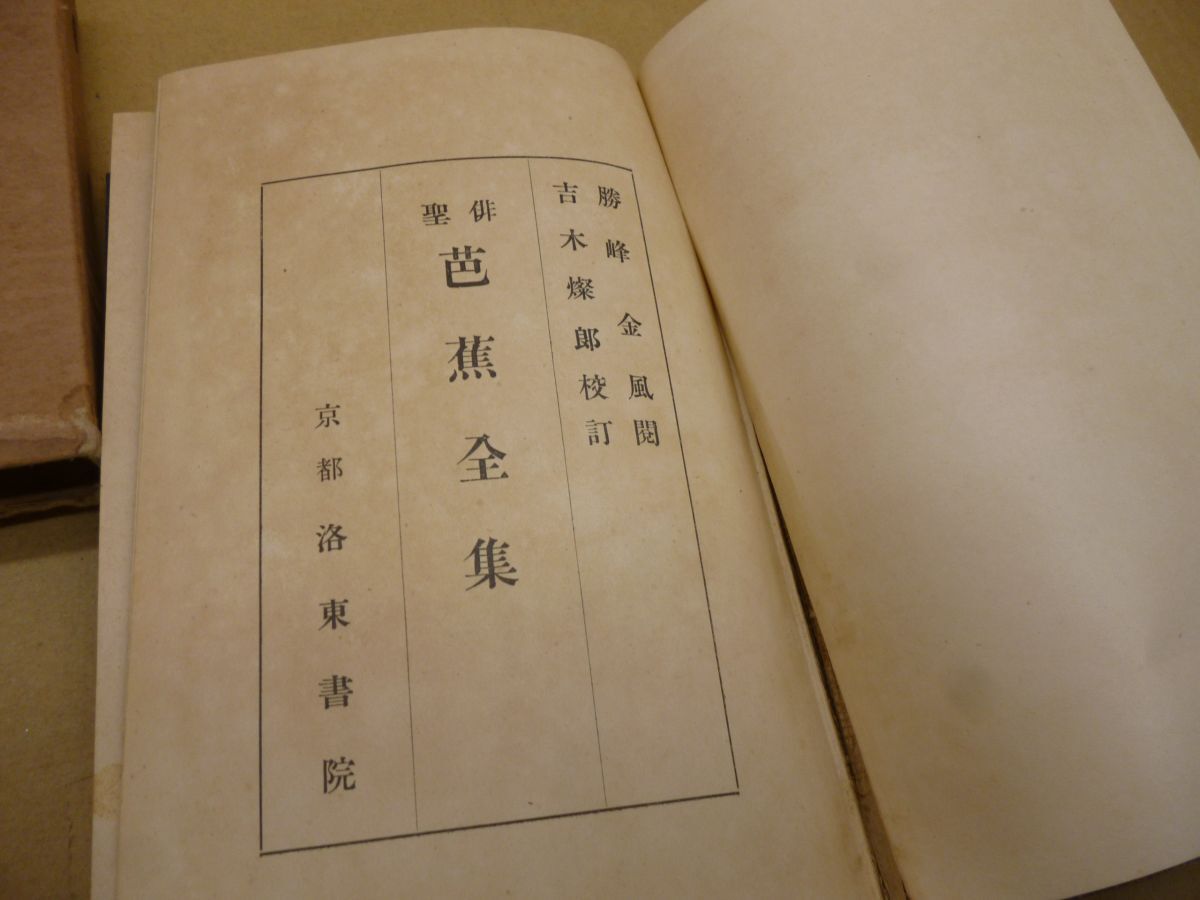 勝峰金風閲
吉木燦郎校訂
俳聖
芭蕉全集
京都洛東書院